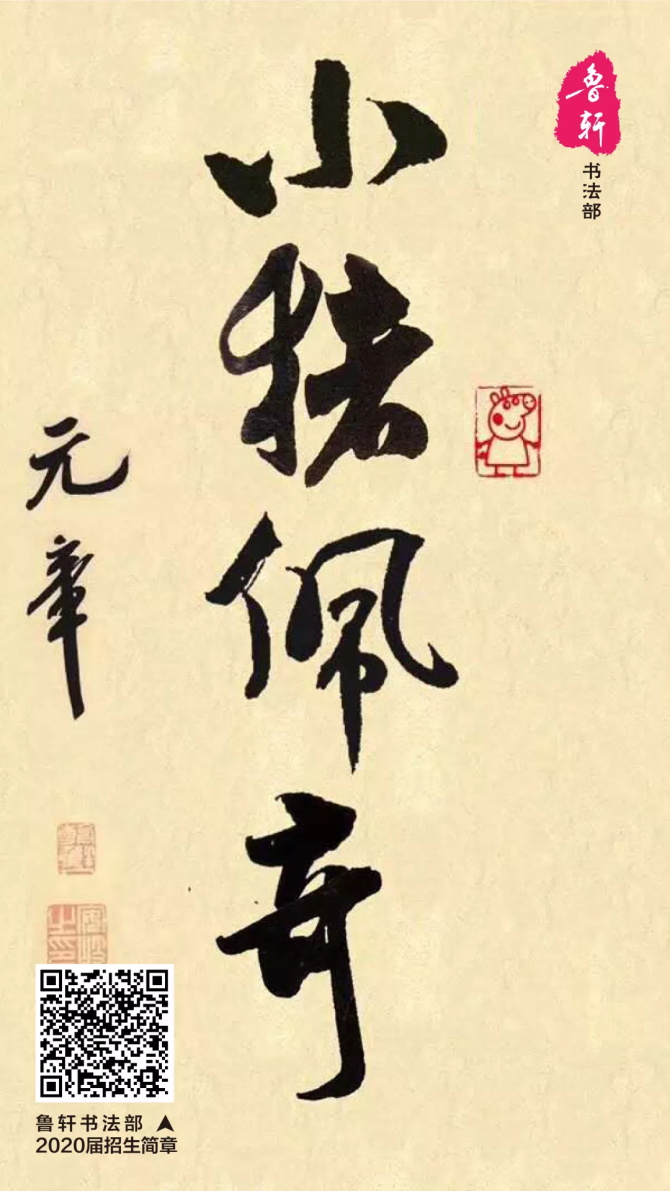 鲁轩
书法部
小猪佩奇
元章
鲁轩书法部
2020届招生简章